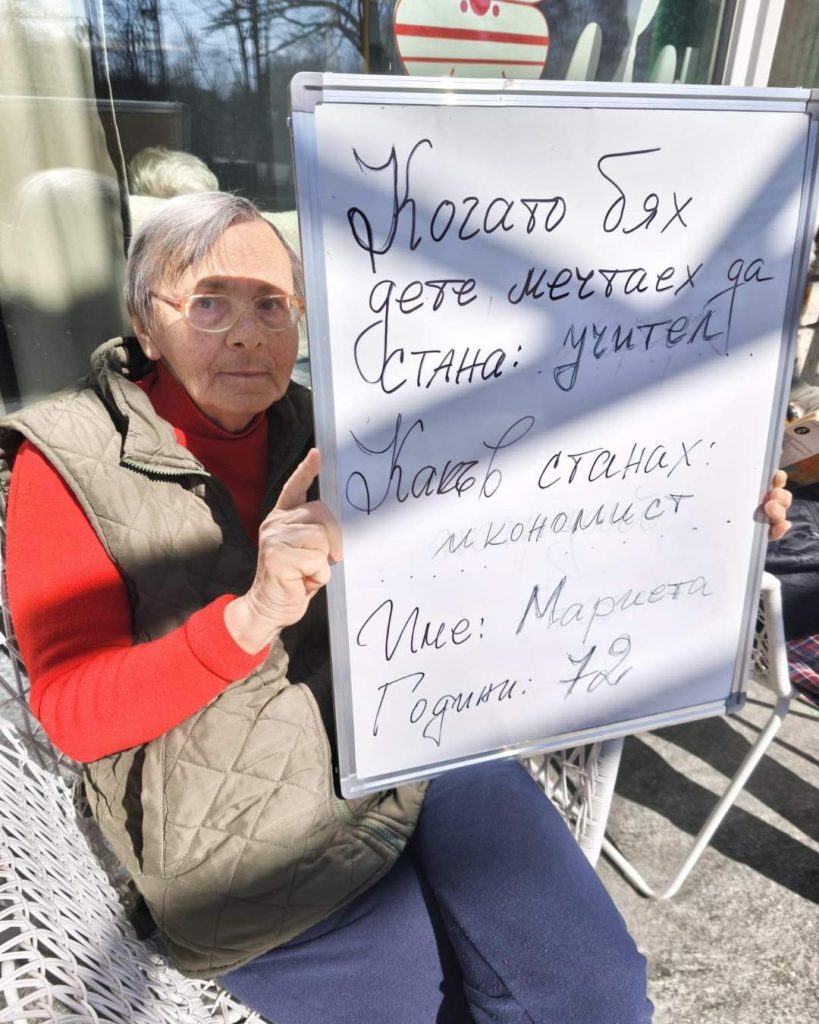 Когато бях
дете мечтаех да
стана: учител
Какъв станах:
икономист
Име: Мариета
Години: 72